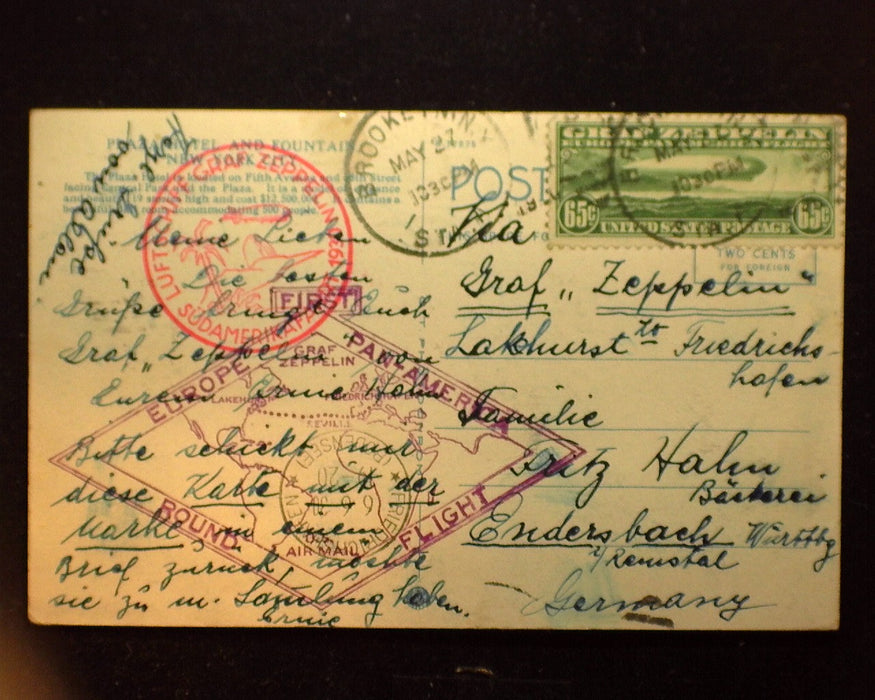 PLAZA HOTEL AND FOUNTAIN
NEW YORK CITY
The Plaza Hotel is located on Fifth Avenue and 59th Street
facing Central Park and the Plaza. It is a
19 stories high and cost $12,500,000. It contains a
room accommodating 500 people.
Meine Lieben
Die besten
Grüße bringt Euch
Graf „Zeppelin" von
Eurem Ernie Hahn
Bitte schickt mir
diese Karte mit der
Marke in einem
Brief zurück, möchte
sie zu m. Samlung haben.
Ernie
LUFTSCHIFF GRAF ZEPPELIN
SÜDAMERIKAFAHRT 1930
FIRST
EUROPE
PAN AMERICA
ROUND
FLIGHT
GRAF
ZEPPELIN
LAKEHURST
FRIEDRICHSHAFEN
SEVILLE
AIR MAIL
FRIEDRICHSHAFEN
(BODENSEE)
BROOKLYN, N.Y.
MAY 27
1030PM
STA.
POST
GRAF ZEPPELIN
65¢
65¢
UNITED STATES POSTAGE
MAY
1030PM
STA.
TWO CENTS
FOR FOREIGN
Via
Graf „Zeppelin"
Lakhurst to Friedrichs-
hafen
Familie
Fritz Hahn
Bäckerei
Endersbach Württbg
i/Remstal
Germany